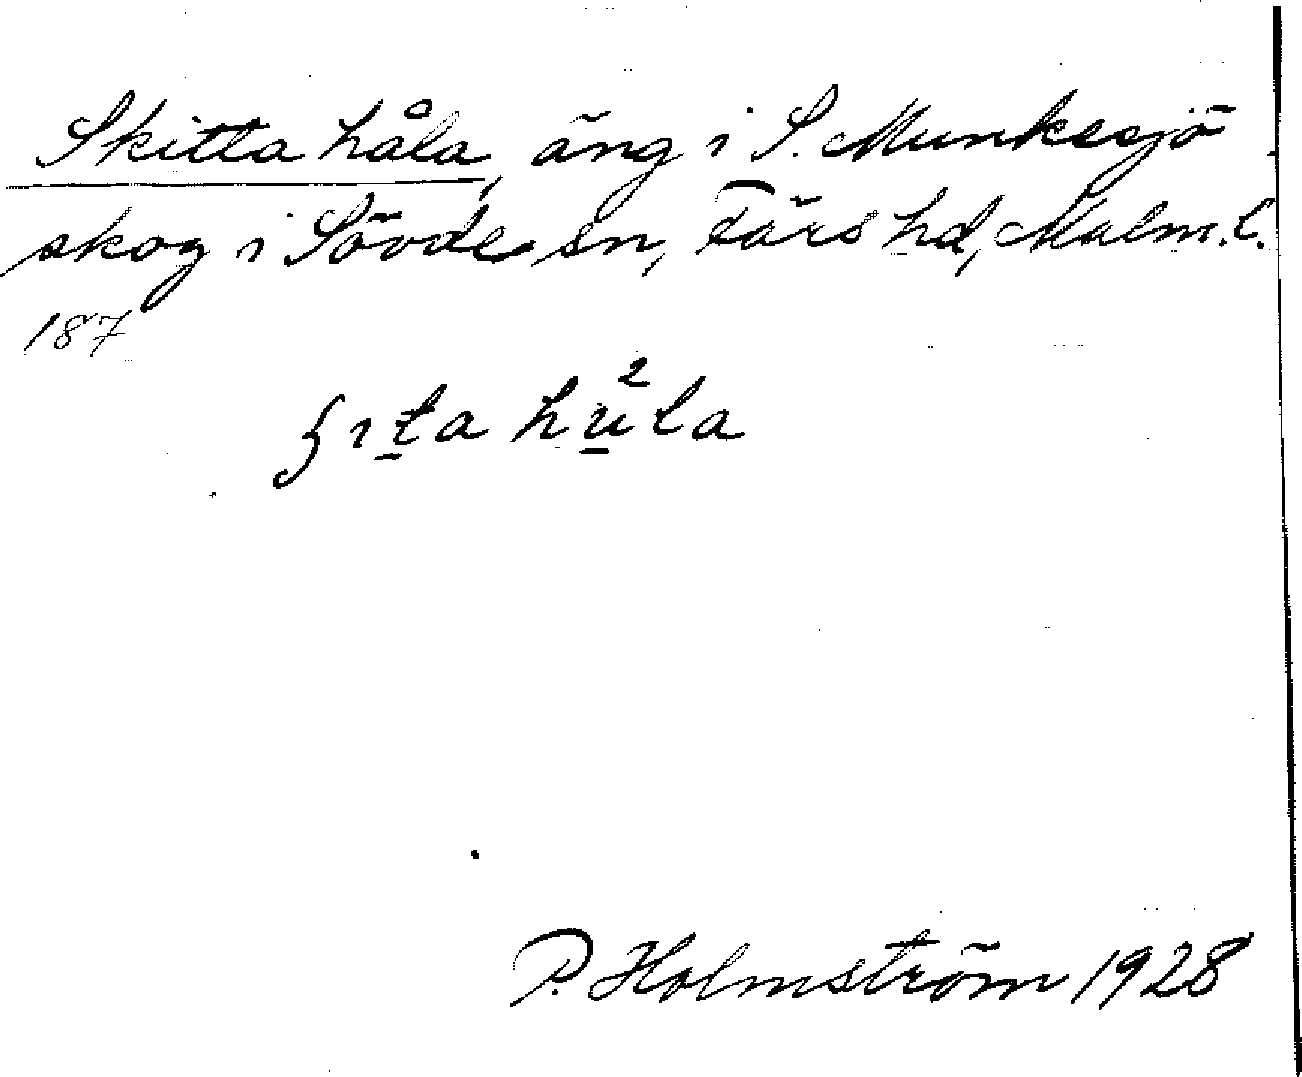 Skitta håla, äng i S. Munksjö
skog i Sövde sn, Färs hd, Malm. l.
187
ʒıṯa hṳ²la
P. Holmström 1928